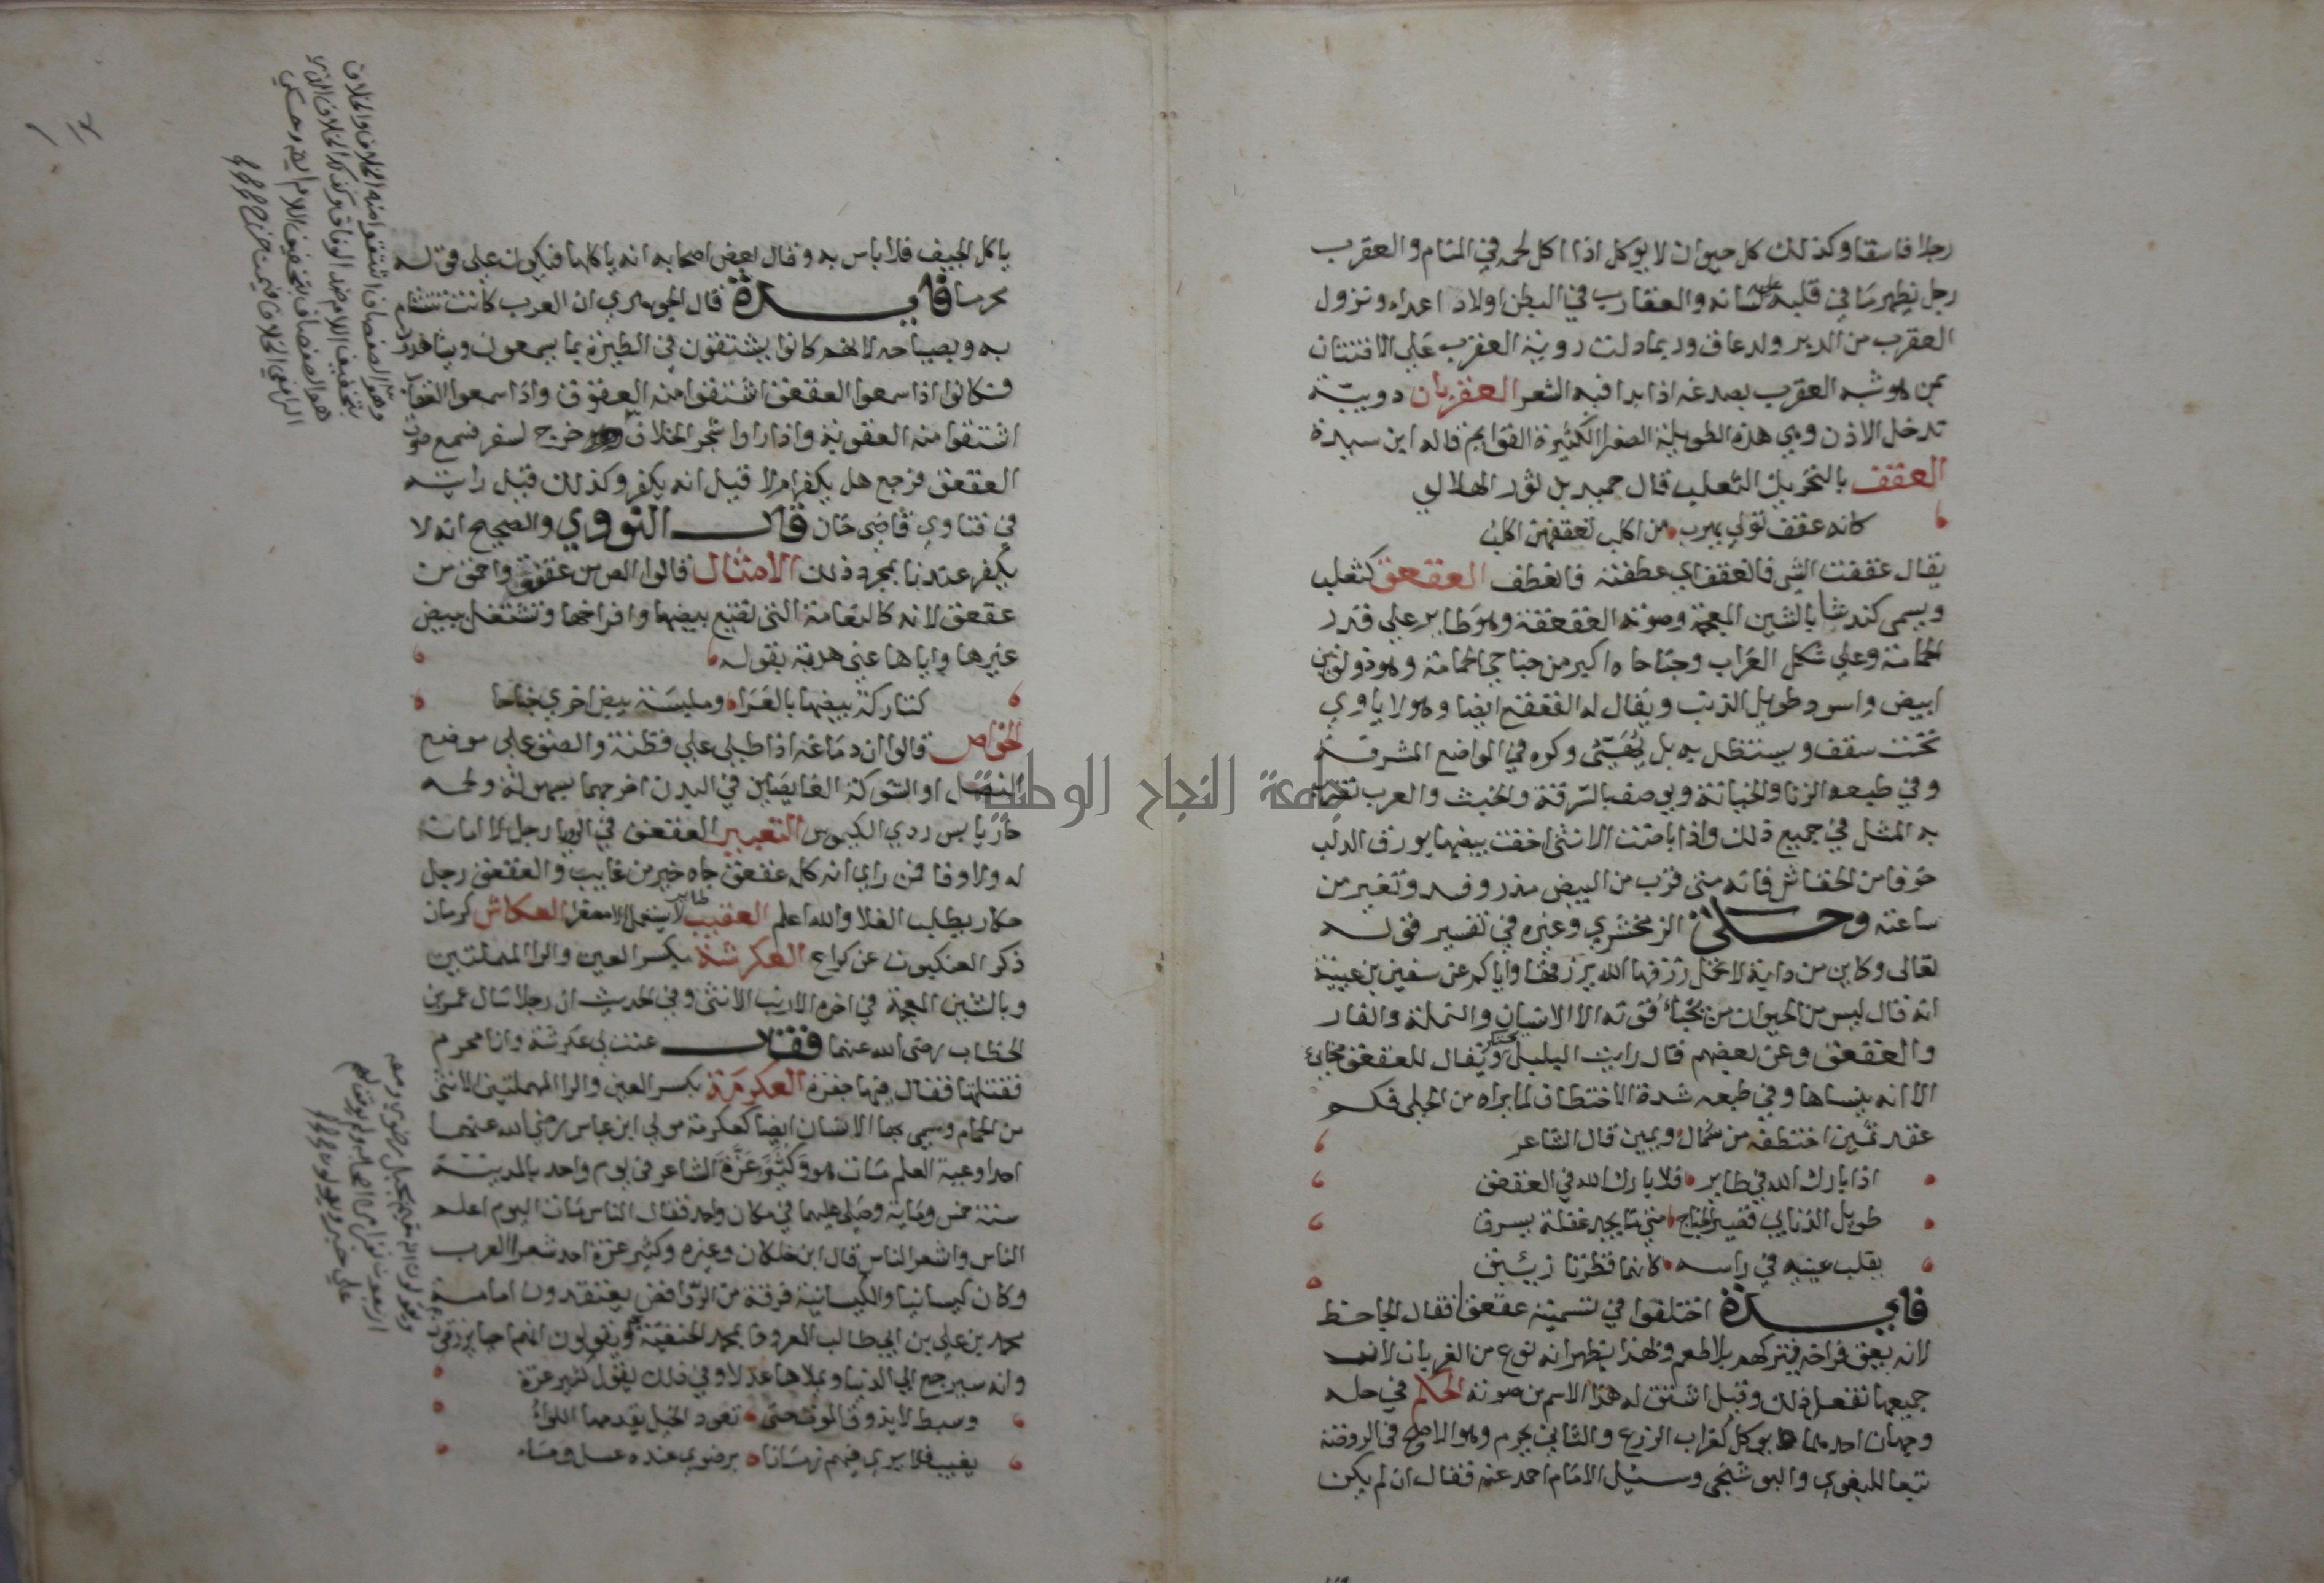 رجلا فاسقا وكذلك كل حيوان لا يوكل اذا اكل لحمه في المنام والعقرب
رجل يظهر ما في قلبه علي لسانه والعقارب في البطن اولاد اعداء ونزول
العقرب من الدبر ولد عاق وربما دلت روية العقرب علي الافتتان
بمن هو شبه العقرب بصدغه اذا بدا فيه الشعر العقربان دويبة
تدخل الاذن وهي هذه الطويلة الصفرا الكثيرة القوايم قاله ابن سيده
العقف بالتحريك الثعلب قال حميد بن ثور الهلالي
كانه عقف تولي يهرب من اكلب تعقفهن اكلب
يقال عقفت الشي فانعقف اي عطفته فانعطف العقعق كثعلب
ويسمى كندشا بالشين المعجمة وصوته العقعقة وهو طاير علي قدر
الحمامة وعلي شكل الغراب وجناحاه اكبر من جناحي الحمامة وهو ذو لونين
ابيض واسود طويل الذنب ويقال له القعقع ايضا وهو لا ياوي
تحت سقف ويستظل به بل يهيئ وكره في المواضع المشرفة
وفي طبعه الزنا والخيانة ويوصف بالسرقة والخبث والعرب تضرب
به المثل في جميع ذلك واذا باضت الانثى اخفت بيضها بورق الدلب
خوفا من الخفاش فانه متى قرب من البيض مذر وفسد وتغير من
ساعته وحكى الزمخشري وغيره في تفسير قوله
تعالى وكاين من دابة لا تحمل رزقها الله يرزقها واياكم عن سفين بن عيينة
انه قال ليس من الحيوان من يخبأ قوته الا الانسان والنملة والفار
والعقعق وعن بعضهم قال رايت البلبل يحتكر ويقال للعقعق مخابئ
الا انه ينساها وفي طبعه شدة الاختطاف لما يراه من الحلي فكم
عقد ثمين اختطفه من شمال ويمين قال الشاعر
اذا بارك الله في طاير فلا بارك الله في العقعق
طويل الذنابي قصير الجناح متى ما يجد غفلة يسرق
يقلب عينيه في راسه كانهما قطرتا زيبق
فايدة اختلفوا في تسمية عقعقا فقال الجاحظ
لانه يعق فراخه فيتركهم بلا طعم وبهذا يظهر انه نوع من الغربان لان
جميعها تفعل ذلك وقيل اشتق له هذا الاسم من صوته الحكم في حله
وجهان احدهما يوكل كغراب الزرع والثاني يحرم وهو الاصح في الروضة
تبعا للبغوي والبوشنجي وسئل الامام احمد عنه فقال ان لم يكن
ياكل الجيف فلا باس به وقال بعض اصحابه انه ياكلها فيكون علي قوله
محرما فايدة قال الجوهري ان العرب كانت تتشام
به وبصياحه لانهم كانوا يشتقون في الطيرة بما يسمعون ويشاهدون
فكانوا اذا سمعوا العقعق اشتقوا منه العقوق واذا سمعوا العقاب
اشتقوا منه العقوبة واذا راوا شجر الخلاف خرج لسفر فسمع صوت
العقعق فرجع هل يكفر ام لا قيل انه يكفر وكذلك قيل رايته
في فتاوي قاضي خان قال النووي والصحيح انه لا
يكفر عندنا بمجرد ذلك الامثال قالوا الص من عقعق واحمق من
عقعق لانه كالنعامة التي تضيع بيضها وافراخها وتشتغل ببيض
غيرها واياها عنى هدبة بقوله
كتاركة بيضها بالعرا وملبسة بيض اخري جناحا
الخواص قالوا ان دماغه اذا طلي علي قطنة والصق علي موضع
النصل او الشوكة الغايصين في البدن اخرجهما بسهولة ولحمه
حار يابس ردي الكيموس التعبير العقعق في الرويا رجل لا امانة
له ولا وفا فمن راي انه كله عقعق جاه خبر من غايب والعقعق رجل
حكار يطلب الغلا والله اعلم العقيب طاير لا يستعمل الا مصغرا العكاش كرمان
ذكر العنكبوت عن كراع العكرشة بكسر العين والرا المهملتين
وبالشين المعجمة في اخره الارنب الانثى وفي الحديث ان رجلا سال عمر بن
الخطاب رضي الله عنهما فقال عنت لي عكرشة وانا محرم
فقتلتها فقال فيها جفرة العكرمة بكسر العين والرا المهملتين الانثى
من الحمام وسمي بها الانسان ايضا كعكرمة مولي ابن عباس رضي الله عنهما
احد اوعية العلم مات هو وكثير عزة الشاعر في يوم واحد بالمدينة
سنة خمس وماية وصلى عليهما في مكان واحد فقال الناس مات اليوم اعلم
الناس واشعر الناس قال ابن خلكان وغيره وكثير عزة احد شعرا العرب
وكان كيسانيا والكيسانية فرقة من الروافض يعتقدون امامة
محمد بن علي بن ابي طالب المعروف بمحمد الحنفية ويقولون انهم احيا يرزقون
وانه سيرجع الي الدنيا ويملاها عدلا وفي ذلك يقول كثير عزة
وسبط لا يذوق الموت حتى تعود الخيل يقدمها اللواء
يغيب فلا يري فيهم زمانا برضوي عنده عسل وماء
وهو الصفصاف اشتقوا منه الخلاف والخلاف
بتخفيف اللام ضد الوفاق وكذا الخلاف الذي
هو الصفصاف بتخفيف اللام ايضا وحكي
الرافعي الخلاف فيمن خرج
ويقولون انه مقيم بجبل رضوي ومعه
اربعون نفرا من اصحابه ولم يوقف لهم
علي خبر ويقولون
جامعة النجاح الوطنية